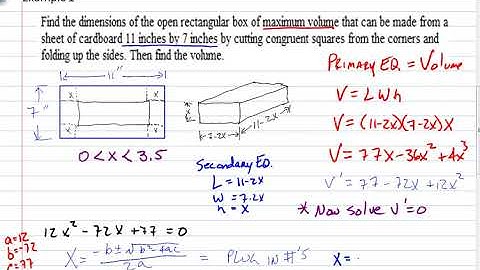 Find the dimensions of the open rectangular box of maximum volume that can be made from a
sheet of cardboard 11 inches by 7 inches by cutting congruent squares from the corners and
folding up the sides. Then find the volume.
11"
7"
x x
x x
0 < x < 3.5
x
7-2x
11-2x
Secondary EQ.
L = 11-2x
W = 7-2x
h = x
Primary EQ. = Volume
V = L W h
V = (11-2x)(7-2x)x
V = 77x - 36x² + 4x³
V' = 77 - 72x + 12x²
* Now solve V' = 0
12x² - 72x + 77 = 0
a=12
b=-72
c=77
x = -b ± √b² - 4ac / 2a = Plug in #'s
x =